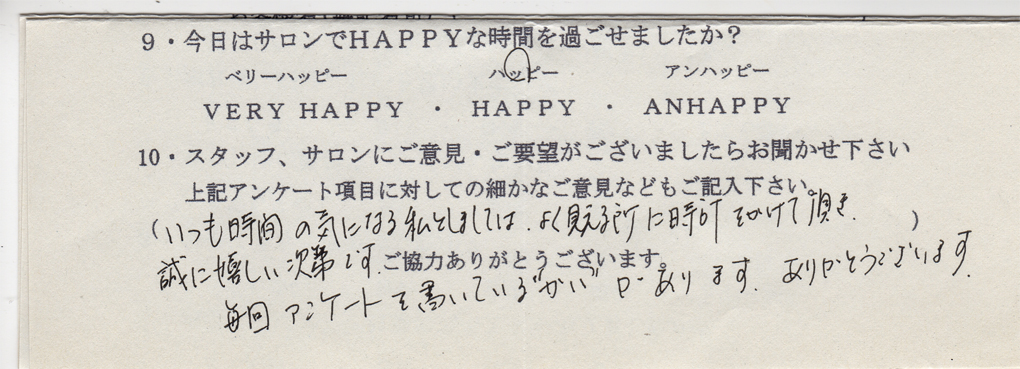 9・今日はサロンでHAPPYな時間を過ごせましたか？
ベリーハッピー ハッピー アンハッピー
VERY HAPPY ・ HAPPY ・ ANHAPPY
10・スタッフ、サロンにご意見・ご要望がございましたらお聞かせ下さい
上記アンケート項目に対しての細かなご意見などもご記入下さい。
(いつも時間の気になる私としましては、よく見える所に時計をかけて頂き、)
誠に嬉しい次第です。
ご協力ありがとうございます。
毎回アンケートを書いている"かい"があります。ありがとうございます。